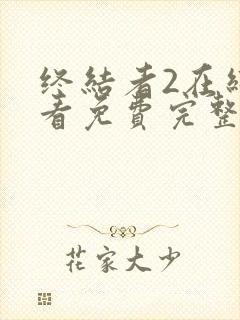 终结者2在纟
看免费完整
花家大少